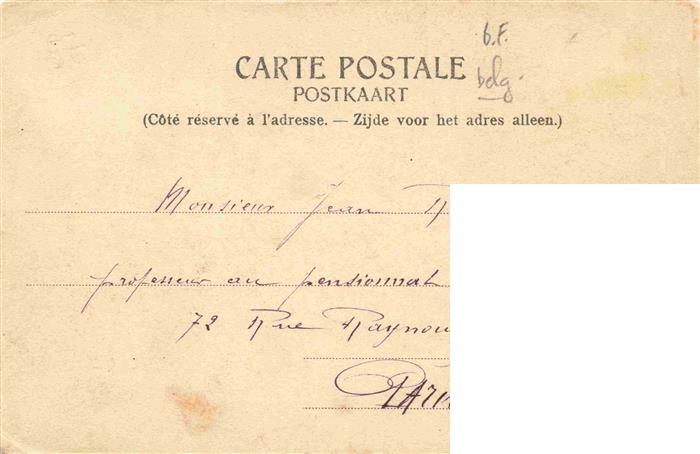 b.F.
CARTE POSTALE
belg.
POSTKAART
(Côté réservé à l'adresse. — Zijde voor het adres alleen.)
Monsieur Jean
professeur au pensionnat
72 Rue